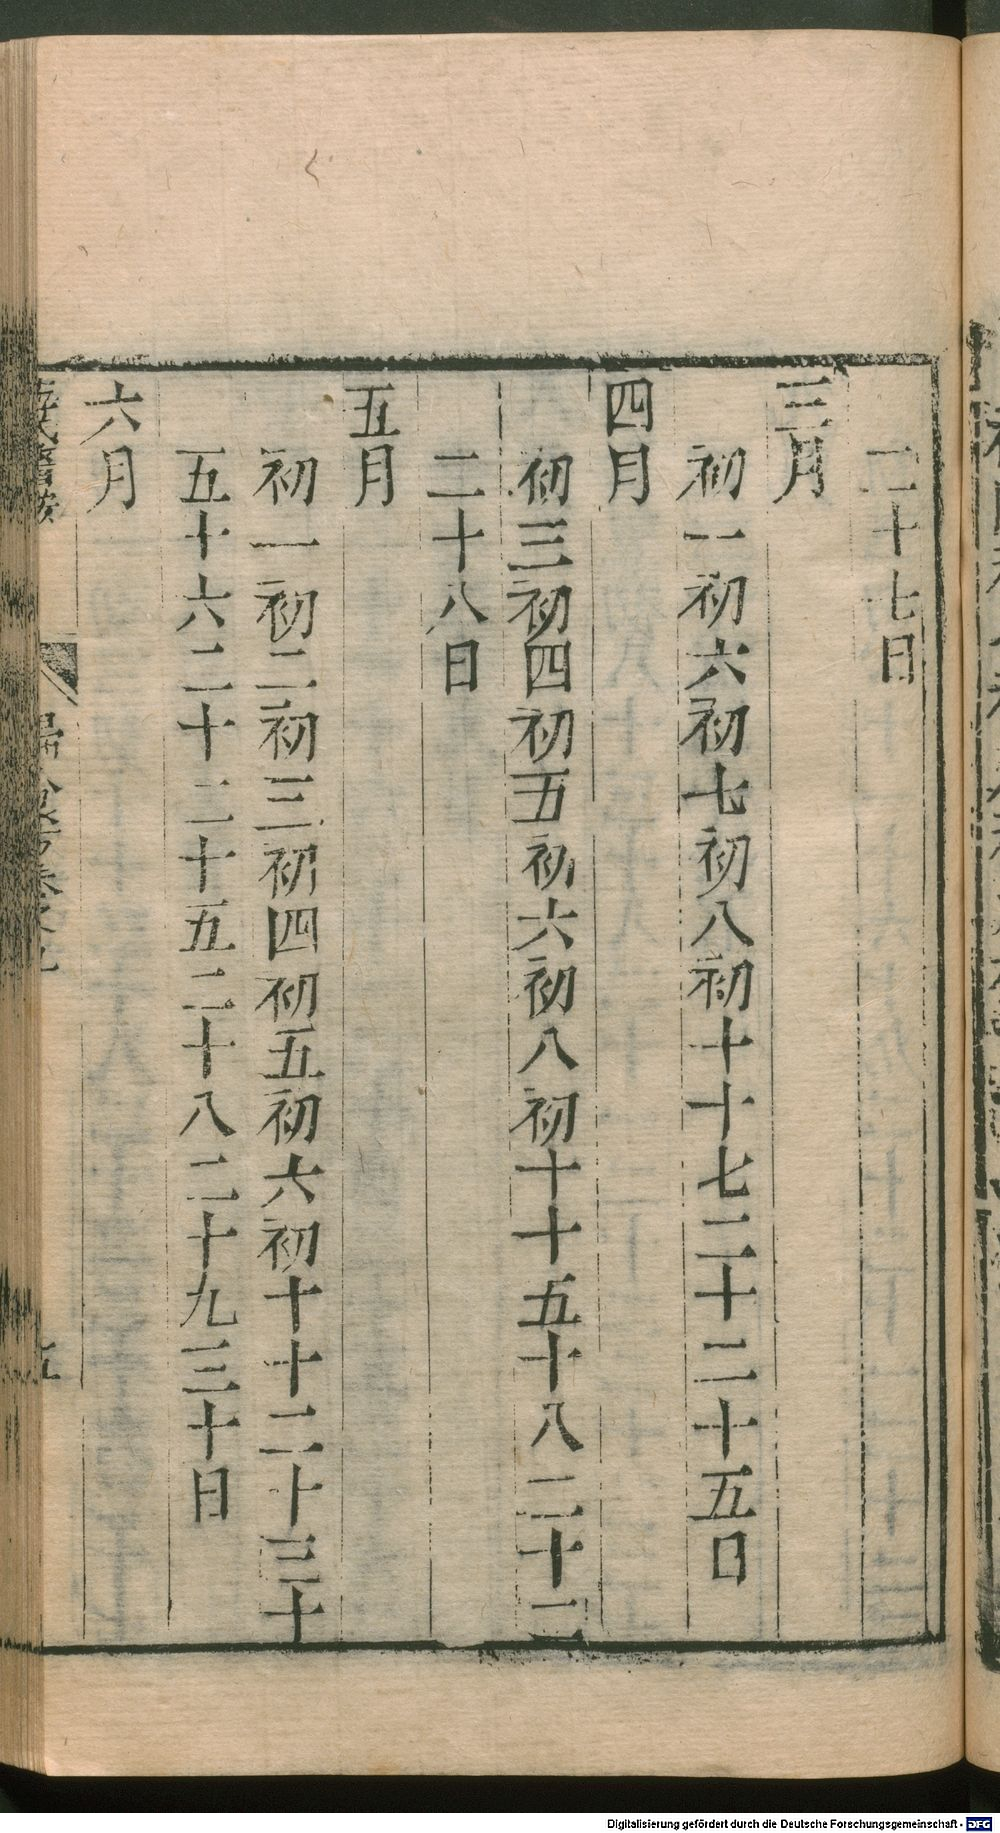 二十七日
三月
初一初六初七初八初十十七二十二十五日
四月
初三初四初五初六初八初十十五十八二十二
二十八日
五月
初一初二初三初四初五初六初十十二十三十
五十六二十二十五二十八二十九三十日
六月
Digitalisierung gefördert durch die Deutsche Forschungsgemeinschaft - DFG